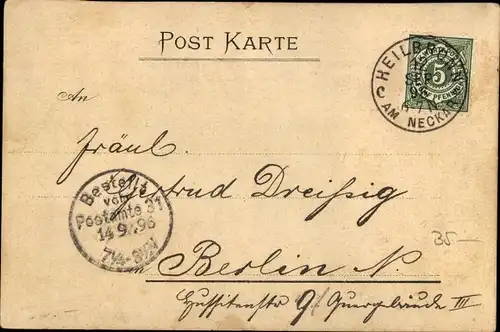 POST KARTE
HEILBRONN
AM NECKAR
5
PFENNIG
An
Fräul.
Gertrud Dreißig
Bestellt
vom
Postamte 31
14.9.96
7¼-8½V
in Berlin N.
Hussitenstr 9/ Quergebäude III
35-